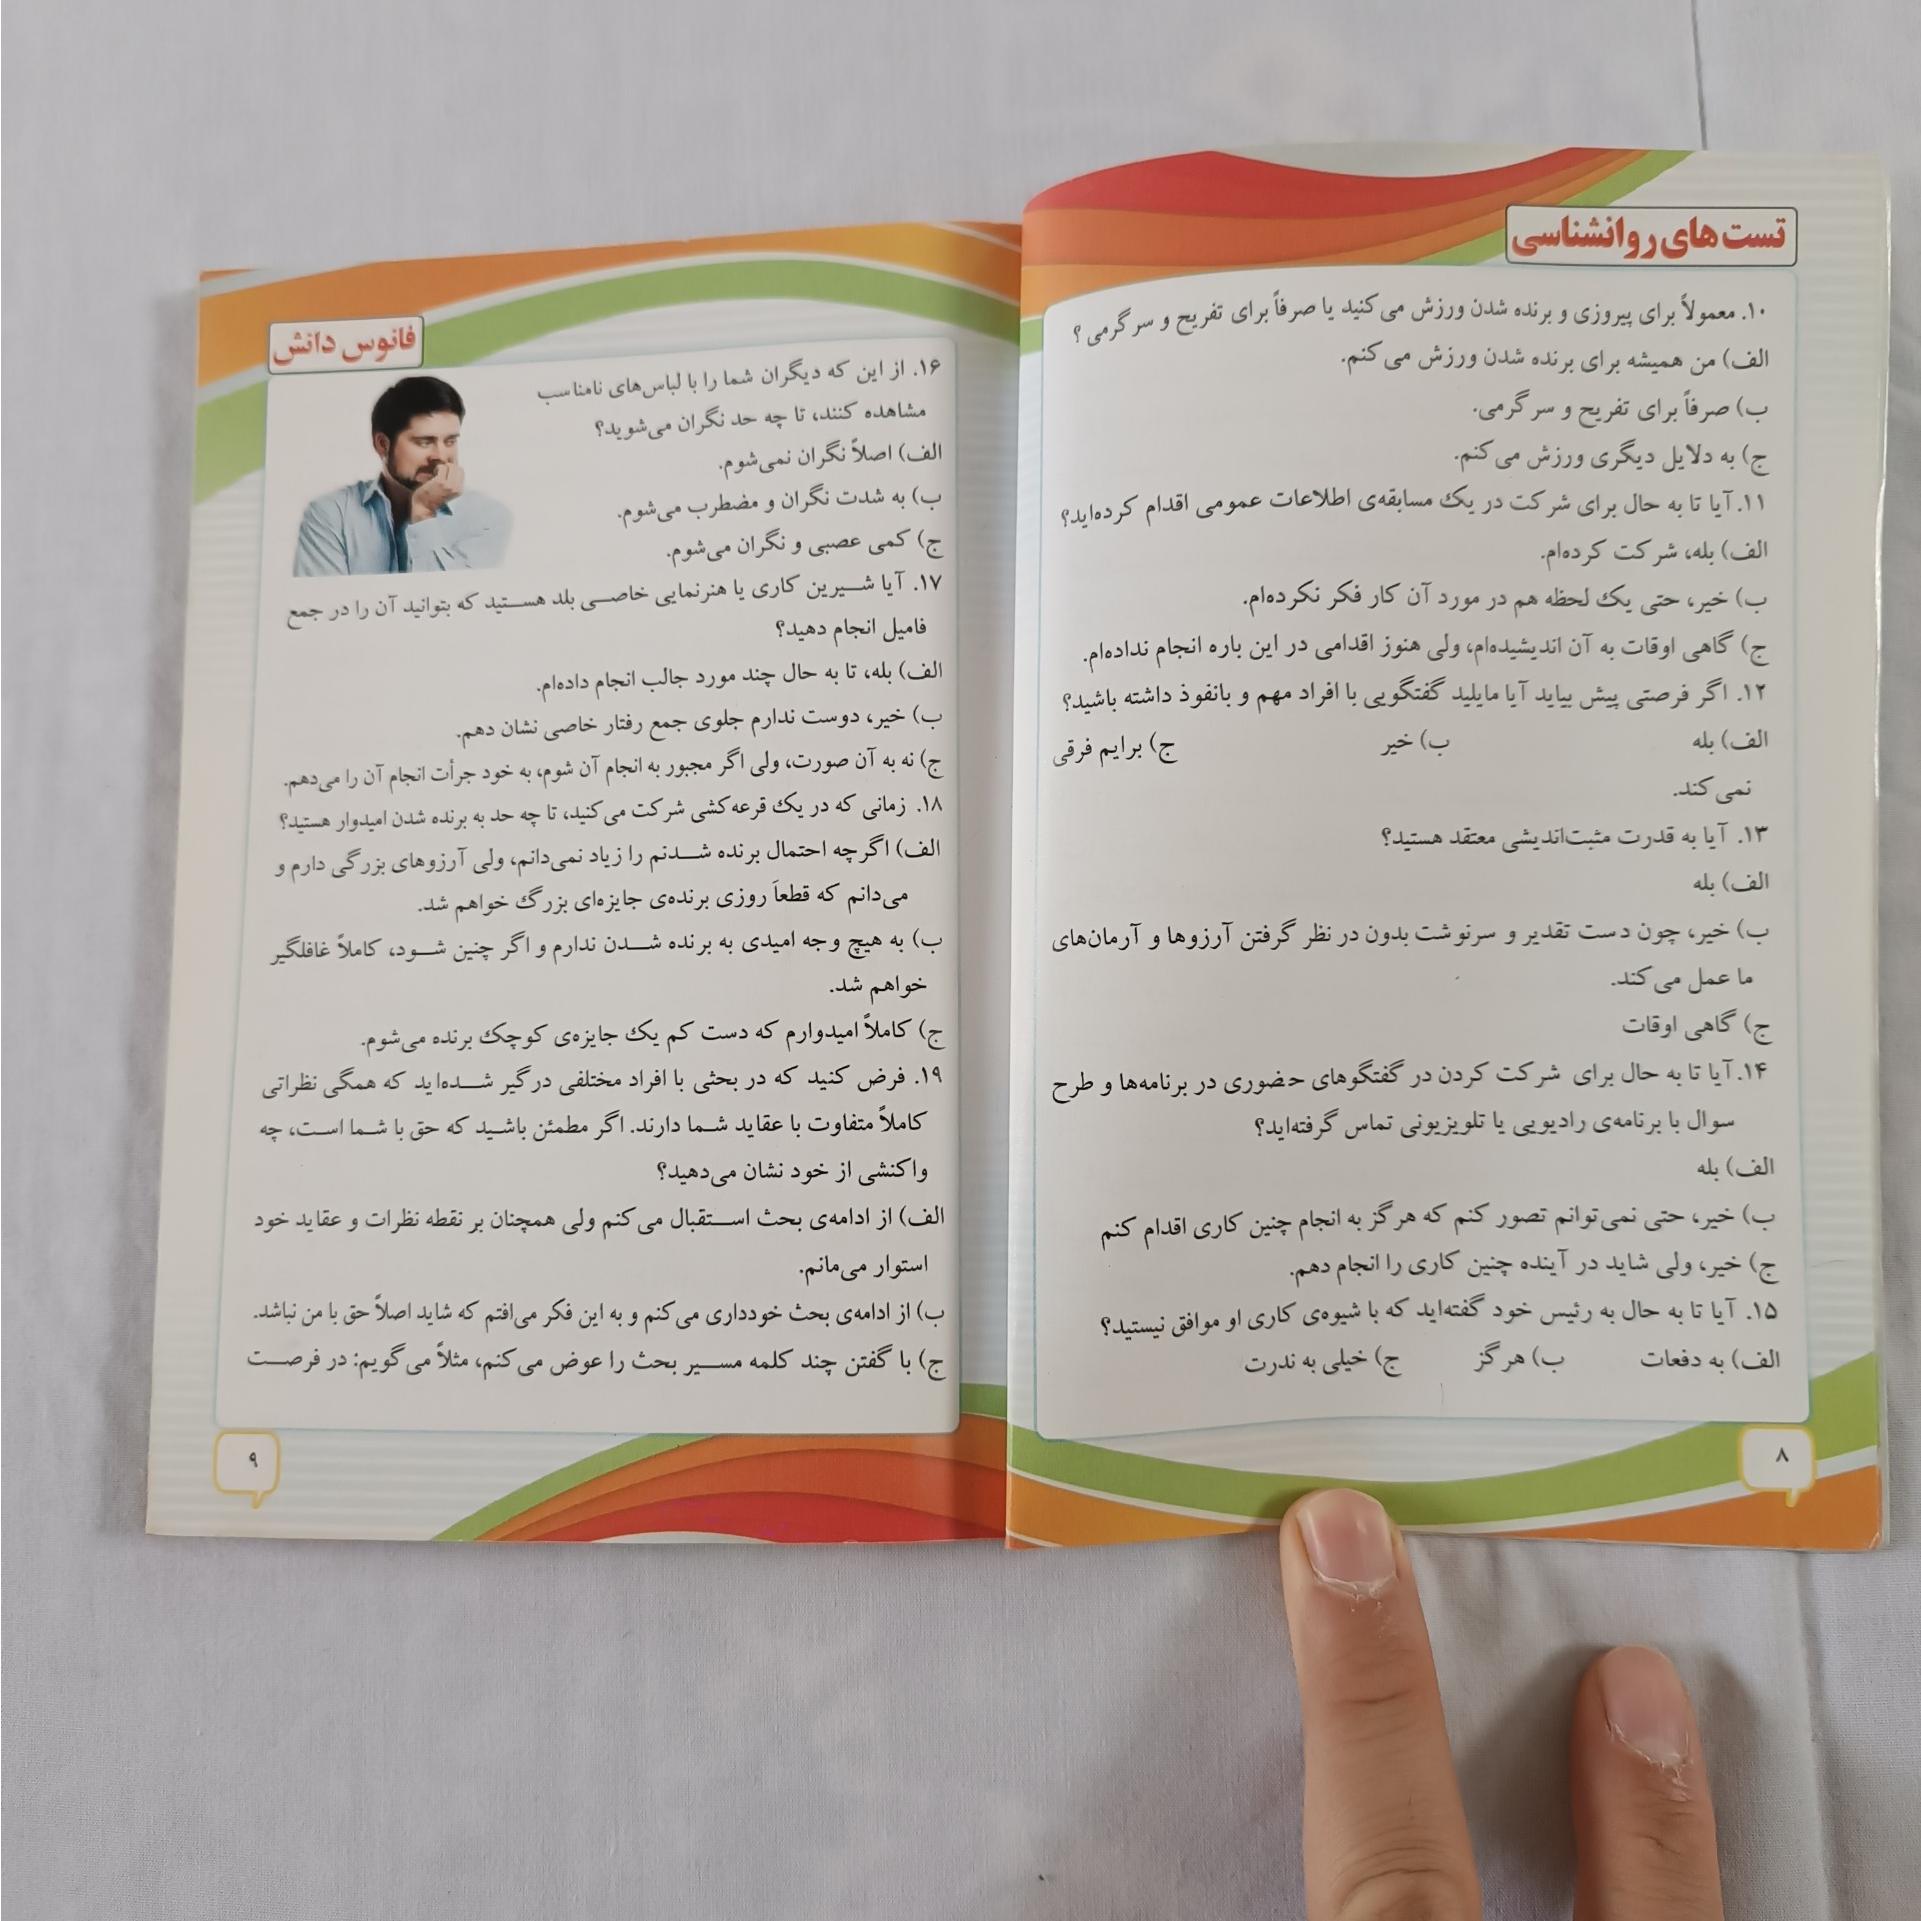 تست های روانشناسی
۱۰. معمولاً برای پیروزی و برنده شدن ورزش می‌کنید یا صرفاً برای تفریح و سرگرمی ؟
الف) من همیشه برای برنده شدن ورزش می‌کنم.
ب) صرفاً برای تفریح و سرگرمی.
ج) به دلایل دیگری ورزش می‌کنم.
۱۱. آیا تا به حال برای شرکت در یک مسابقه‌ی اطلاعات عمومی اقدام کرده‌اید؟
الف) بله، شرکت کرده‌ام.
ب) خیر، حتی یک لحظه هم در مورد آن کار فکر نکرده‌ام.
ج) گاهی اوقات به آن اندیشیده‌ام، ولی هنوز اقدامی در این باره انجام نداده‌ام.
۱۲. اگر فرصتی پیش بیاید آیا مایلید گفتگویی با افراد مهم و بانفوذ داشته باشید؟
الف) بله ب) خیر ج) برایم فرقی
نمی‌کند.
۱۳. آیا به قدرت مثبت‌اندیشی معتقد هستید؟
الف) بله
ب) خیر، چون دست تقدیر و سرنوشت بدون در نظر گرفتن آرزوها و آرمان‌های
ما عمل می‌کند.
ج) گاهی اوقات
۱۴. آیا تا به حال برای شرکت کردن در گفتگوهای حضوری در برنامه‌ها و طرح
سوال با برنامه‌ی رادیویی یا تلویزیونی تماس گرفته‌اید؟
الف) بله
ب) خیر، حتی نمی‌توانم تصور کنم که هرگز به انجام چنین کاری اقدام کنم
ج) خیر، ولی شاید در آینده چنین کاری را انجام دهم.
۱۵. آیا تا به حال به رئیس خود گفته‌اید که با شیوه‌ی کاری او موافق نیستید؟
الف) به دفعات ب) هرگز ج) خیلی به ندرت
۸
فانوس دانش
۱۶. از این که دیگران شما را با لباس‌های نامناسب
مشاهده کنند، تا چه حد نگران می‌شوید؟
الف) اصلاً نگران نمی‌شوم.
ب) به شدت نگران و مضطرب می‌شوم.
ج) کمی عصبی و نگران می‌شوم.
۱۷. آیا شیرین کاری یا هنرنمایی خاصی بلد هستید که بتوانید آن را در جمع
فامیل انجام دهید؟
الف) بله، تا به حال چند مورد جالب انجام داده‌ام.
ب) خیر، دوست ندارم جلوی جمع رفتار خاصی نشان دهم.
ج) نه به آن صورت، ولی اگر مجبور به انجام آن شوم، به خود جرأت انجام آن را می‌دهم.
۱۸. زمانی که در یک قرعه‌کشی شرکت می‌کنید، تا چه حد به برنده شدن امیدوار هستید؟
الف) اگرچه احتمال برنده شدنم را زیاد نمی‌دانم، ولی آرزوهای بزرگی دارم و
می‌دانم که قطعاً روزی برنده‌ی جایزه‌ای بزرگ خواهم شد.
ب) به هیچ وجه امیدی به برنده شدن ندارم و اگر چنین شود، کاملاً غافلگیر
خواهم شد.
ج) کاملاً امیدوارم که دست کم یک جایزه‌ی کوچک برنده می‌شوم.
۱۹. فرض کنید که در بحثی با افراد مختلفی درگیر شده‌اید که همگی نظراتی
کاملاً متفاوت با عقاید شما دارند. اگر مطمئن باشید که حق با شما است، چه
واکنشی از خود نشان می‌دهید؟
الف) از ادامه‌ی بحث استقبال می‌کنم ولی همچنان بر نقطه نظرات و عقاید خود
استوار می‌مانم.
ب) از ادامه‌ی بحث خودداری می‌کنم و به این فکر می‌افتم که شاید اصلاً حق با من نباشد.
ج) با گفتن چند کلمه مسیر بحث را عوض می‌کنم، مثلاً می‌گویم: در فرصت
۹